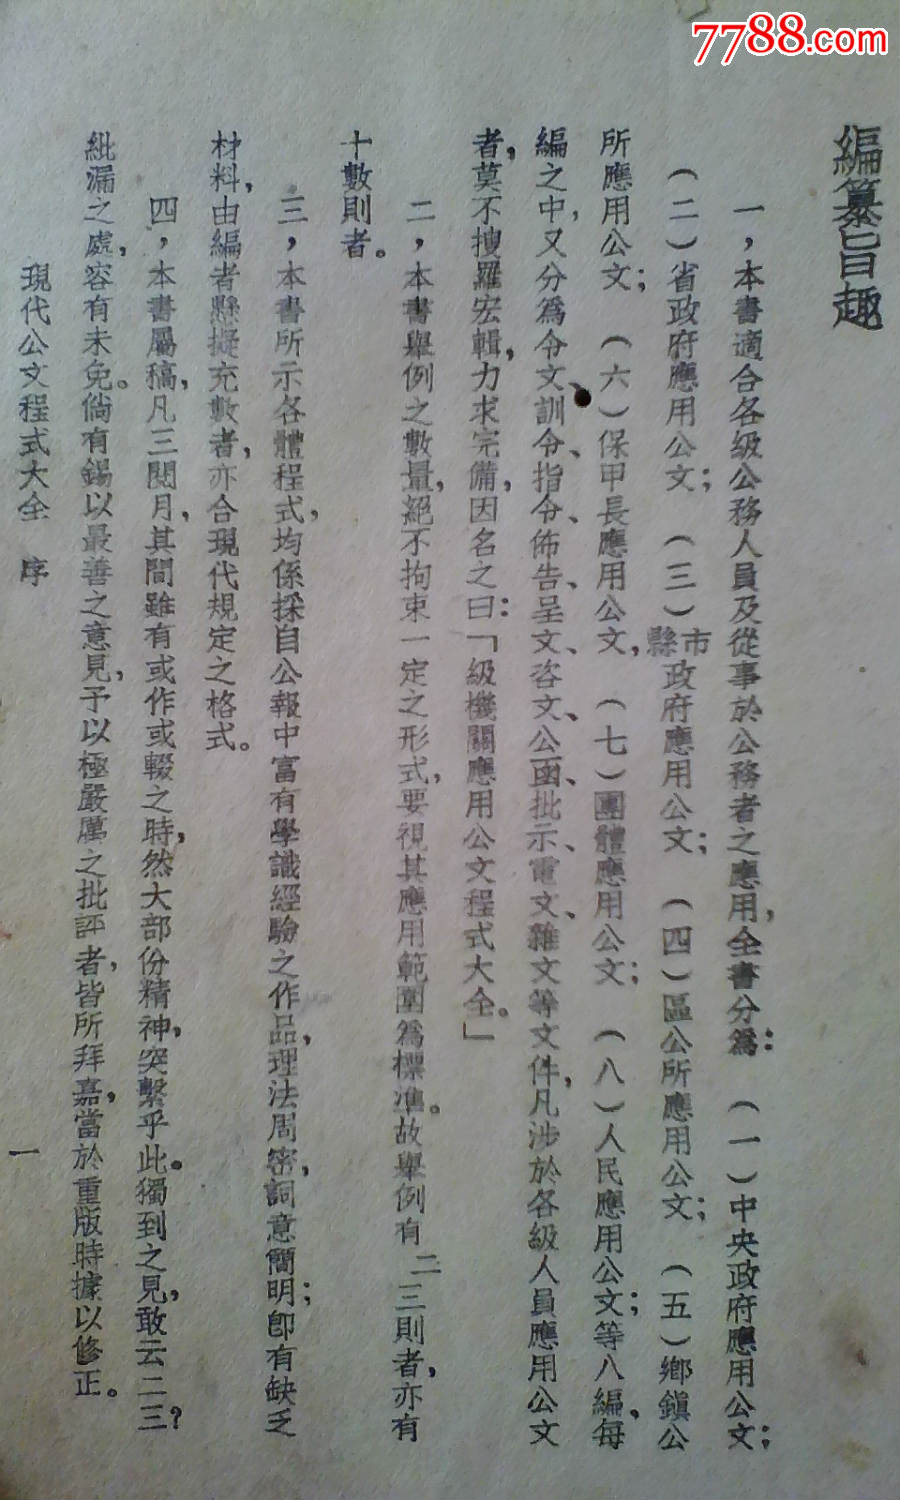 7788.com收藏
編纂旨趣
一，本書適合各級公務人員及從事於公務者之應用，全書分爲：（一）中央政府應用公文；
（二）省政府應用公文；（三）縣市政府應用公文；（四）區公所應用公文；（五）鄉鎭公
所應用公文；（六）保甲長應用公文，（七）團體應用公文；（八）人民應用公文；等八編，每
編之中，又分爲令文、訓令、指令、佈告、呈文、咨文、公函、批示、電文、雜文等文件，凡涉於各級人員應用公文
者，莫不搜羅宏輯，力求完備，因名之曰：「級機關應用公文程式大全。」
二，本書舉例之數量，絕不拘束一定之形式，要視其應用範圍爲標準。故舉例有二三則者，亦有
十數則者。
三，本書所示各體程式，均係採自公報中富有學識經驗之作品，理法周密，詞意簡明；卽有缺乏
材料，由編者懸擬充數者，亦合現代規定之格式。
四，本書屬稿，凡三閱月，其間雖有或作或輟之時，然大部份精神，突繫乎此。獨到之見，敢云二三？
紕漏之處，容有未免。倘有錫以最善之意見，予以極嚴厲之批評者，皆所拜嘉，當於重版時據以修正。
現代公文程式大全　序　一